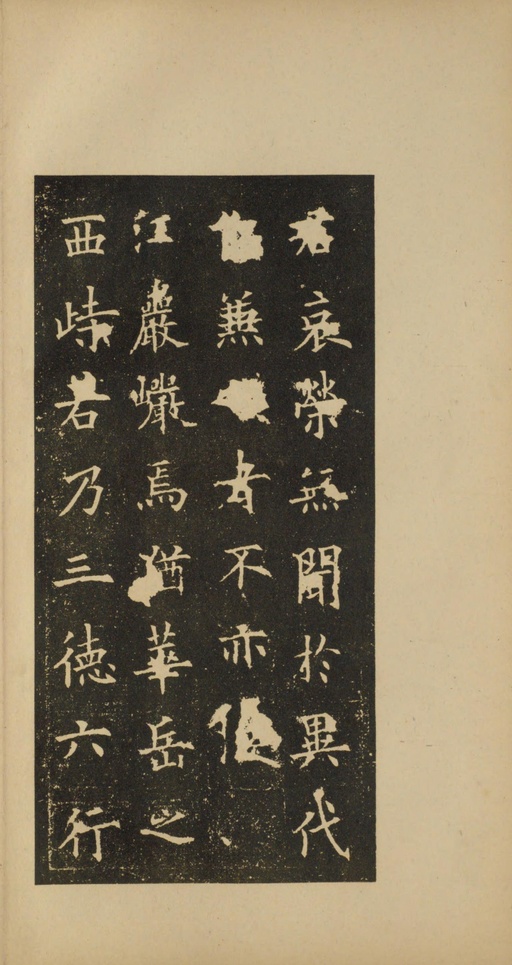 哀榮無聞於異代
兼者不亦
江巖巗焉猶華岳之
西峙若乃三徳六行